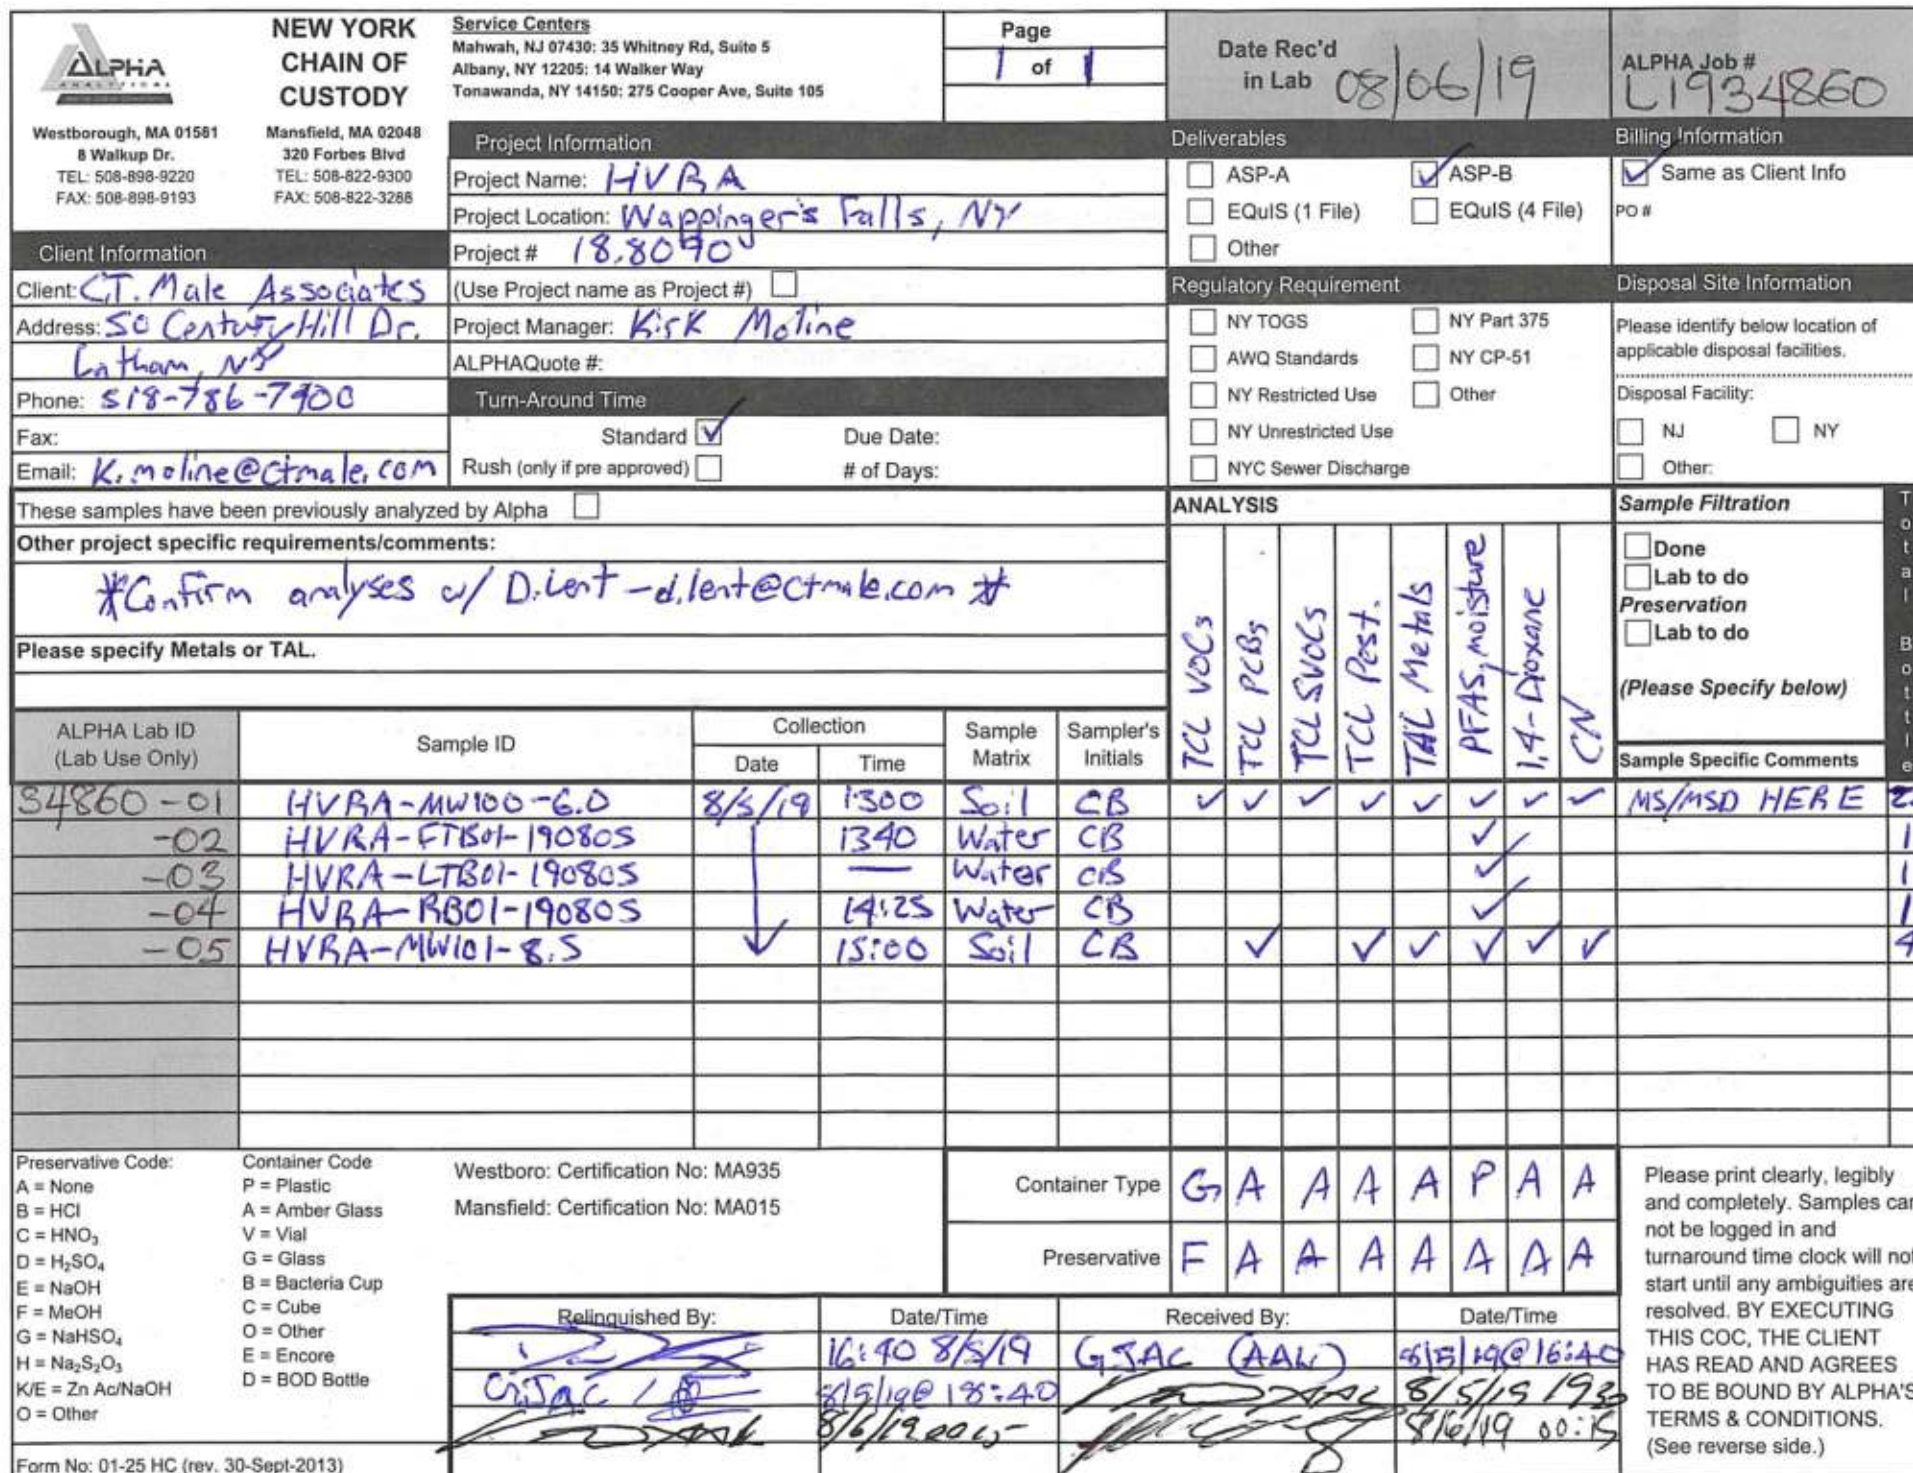 ALPHA
ANALYTICAL
NEW YORK
CHAIN OF
CUSTODY
Westborough, MA 01581
8 Walkup Dr.
TEL: 508-898-9220
FAX: 508-898-9193
Mansfield, MA 02048
320 Forbes Blvd
TEL: 508-822-9300
FAX: 508-822-3288
Service Centers
Mahwah, NJ 07430: 35 Whitney Rd, Suite 5
Albany, NY 12205: 14 Walker Way
Tonawanda, NY 14150: 275 Cooper Ave, Suite 105
Page
1 of 1
Date Rec'd
in Lab 08/06/19
ALPHA Job #
L1934860
Client Information
Client: C.T. Male Associates
Address: 50 Century Hill Dr.
Latham, NY
Phone: 518-786-7400
Fax:
Email: K.moline@ctmale.com
Project Information
Project Name: HVRA
Project Location: Wappinger's Falls, NY
Project # 18.8090
(Use Project name as Project #)
Project Manager: Kirk Moline
ALPHAQuote #:
Turn-Around Time
Standard ✓ Due Date:
Rush (only if pre approved) # of Days:
Deliverables
ASP-A ✓ ASP-B
EQuIS (1 File) EQuIS (4 File)
Other
Regulatory Requirement
NY TOGS NY Part 375
AWQ Standards NY CP-51
NY Restricted Use Other
NY Unrestricted Use
NYC Sewer Discharge
Billing Information
✓ Same as Client Info
PO #
Disposal Site Information
Please identify below location of
applicable disposal facilities.
Disposal Facility:
NJ NY
Other:
These samples have been previously analyzed by Alpha
Other project specific requirements/comments:
*Confirm analyses w/ D.Lent -d.lent@ctmale.com *
Please specify Metals or TAL.
ANALYSIS
TCL VOCs
TCL PCBs
TCL SVOCs
TCL Pest.
TAL Metals
PFAS, moisture
1,4-Dioxane
CN
Sample Filtration
Done
Lab to do
Preservation
Lab to do
(Please Specify below)
Total Bottle
ALPHA Lab ID
(Lab Use Only)
Sample ID
Collection
Date Time
Sample
Matrix
Sampler's
Initials
Sample Specific Comments
34860-01 HVRA-MW100-6.0 8/5/19 1300 Soil CB ✓ ✓ ✓ ✓ ✓ ✓ ✓ ✓ MS/MSD HERE
-02 HVRA-FTB01-190805 1340 Water CB ✓ 1
-03 HVRA-LTB01-190805 — Water CB ✓ 1
-04 HVRA-RB01-190805 14:25 Water CB ✓ 1
-05 HVRA-MW101-8.5 15:00 Soil CB ✓ ✓ ✓ ✓ ✓ ✓ 4
Preservative Code:
A = None
B = HCl
C = HNO₃
D = H₂SO₄
E = NaOH
F = MeOH
G = NaHSO₄
H = Na₂S₂O₃
K/E = Zn Ac/NaOH
O = Other
Container Code
P = Plastic
A = Amber Glass
V = Vial
G = Glass
B = Bacteria Cup
C = Cube
O = Other
E = Encore
D = BOD Bottle
Westboro: Certification No: MA935
Mansfield: Certification No: MA015
Container Type G A A A A P A A
Preservative F A A A A A A A
Relinquished By: Date/Time Received By: Date/Time
16:40 8/5/19 GJAC (AAL) 8/5/19@16:40
GJAC 8/5/19@18:40 AAL 8/5/19 1930
AAL 8/6/19 0015 8/6/19 00:15
Please print clearly, legibly
and completely. Samples can
not be logged in and
turnaround time clock will not
start until any ambiguities are
resolved. BY EXECUTING
THIS COC, THE CLIENT
HAS READ AND AGREES
TO BE BOUND BY ALPHA'S
TERMS & CONDITIONS.
(See reverse side.)
Form No: 01-25 HC (rev. 30-Sept-2013)